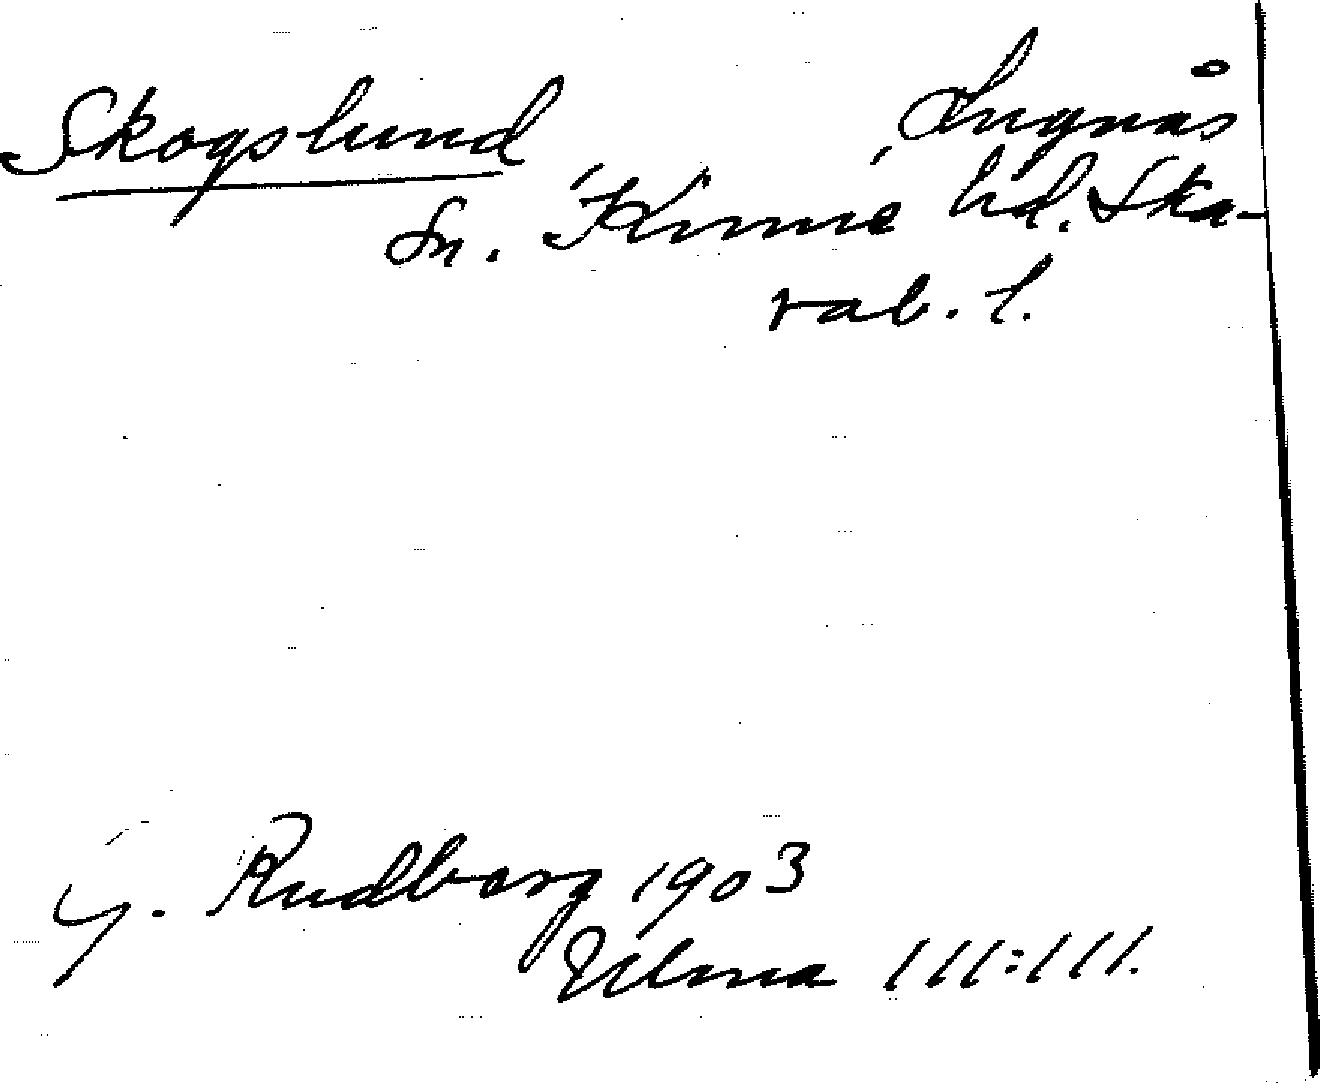 Skogslund Lugnås
Sn. Kinne hd. Ska-
rab. l.
G. Rudberg 1903
Ulma 111:111.